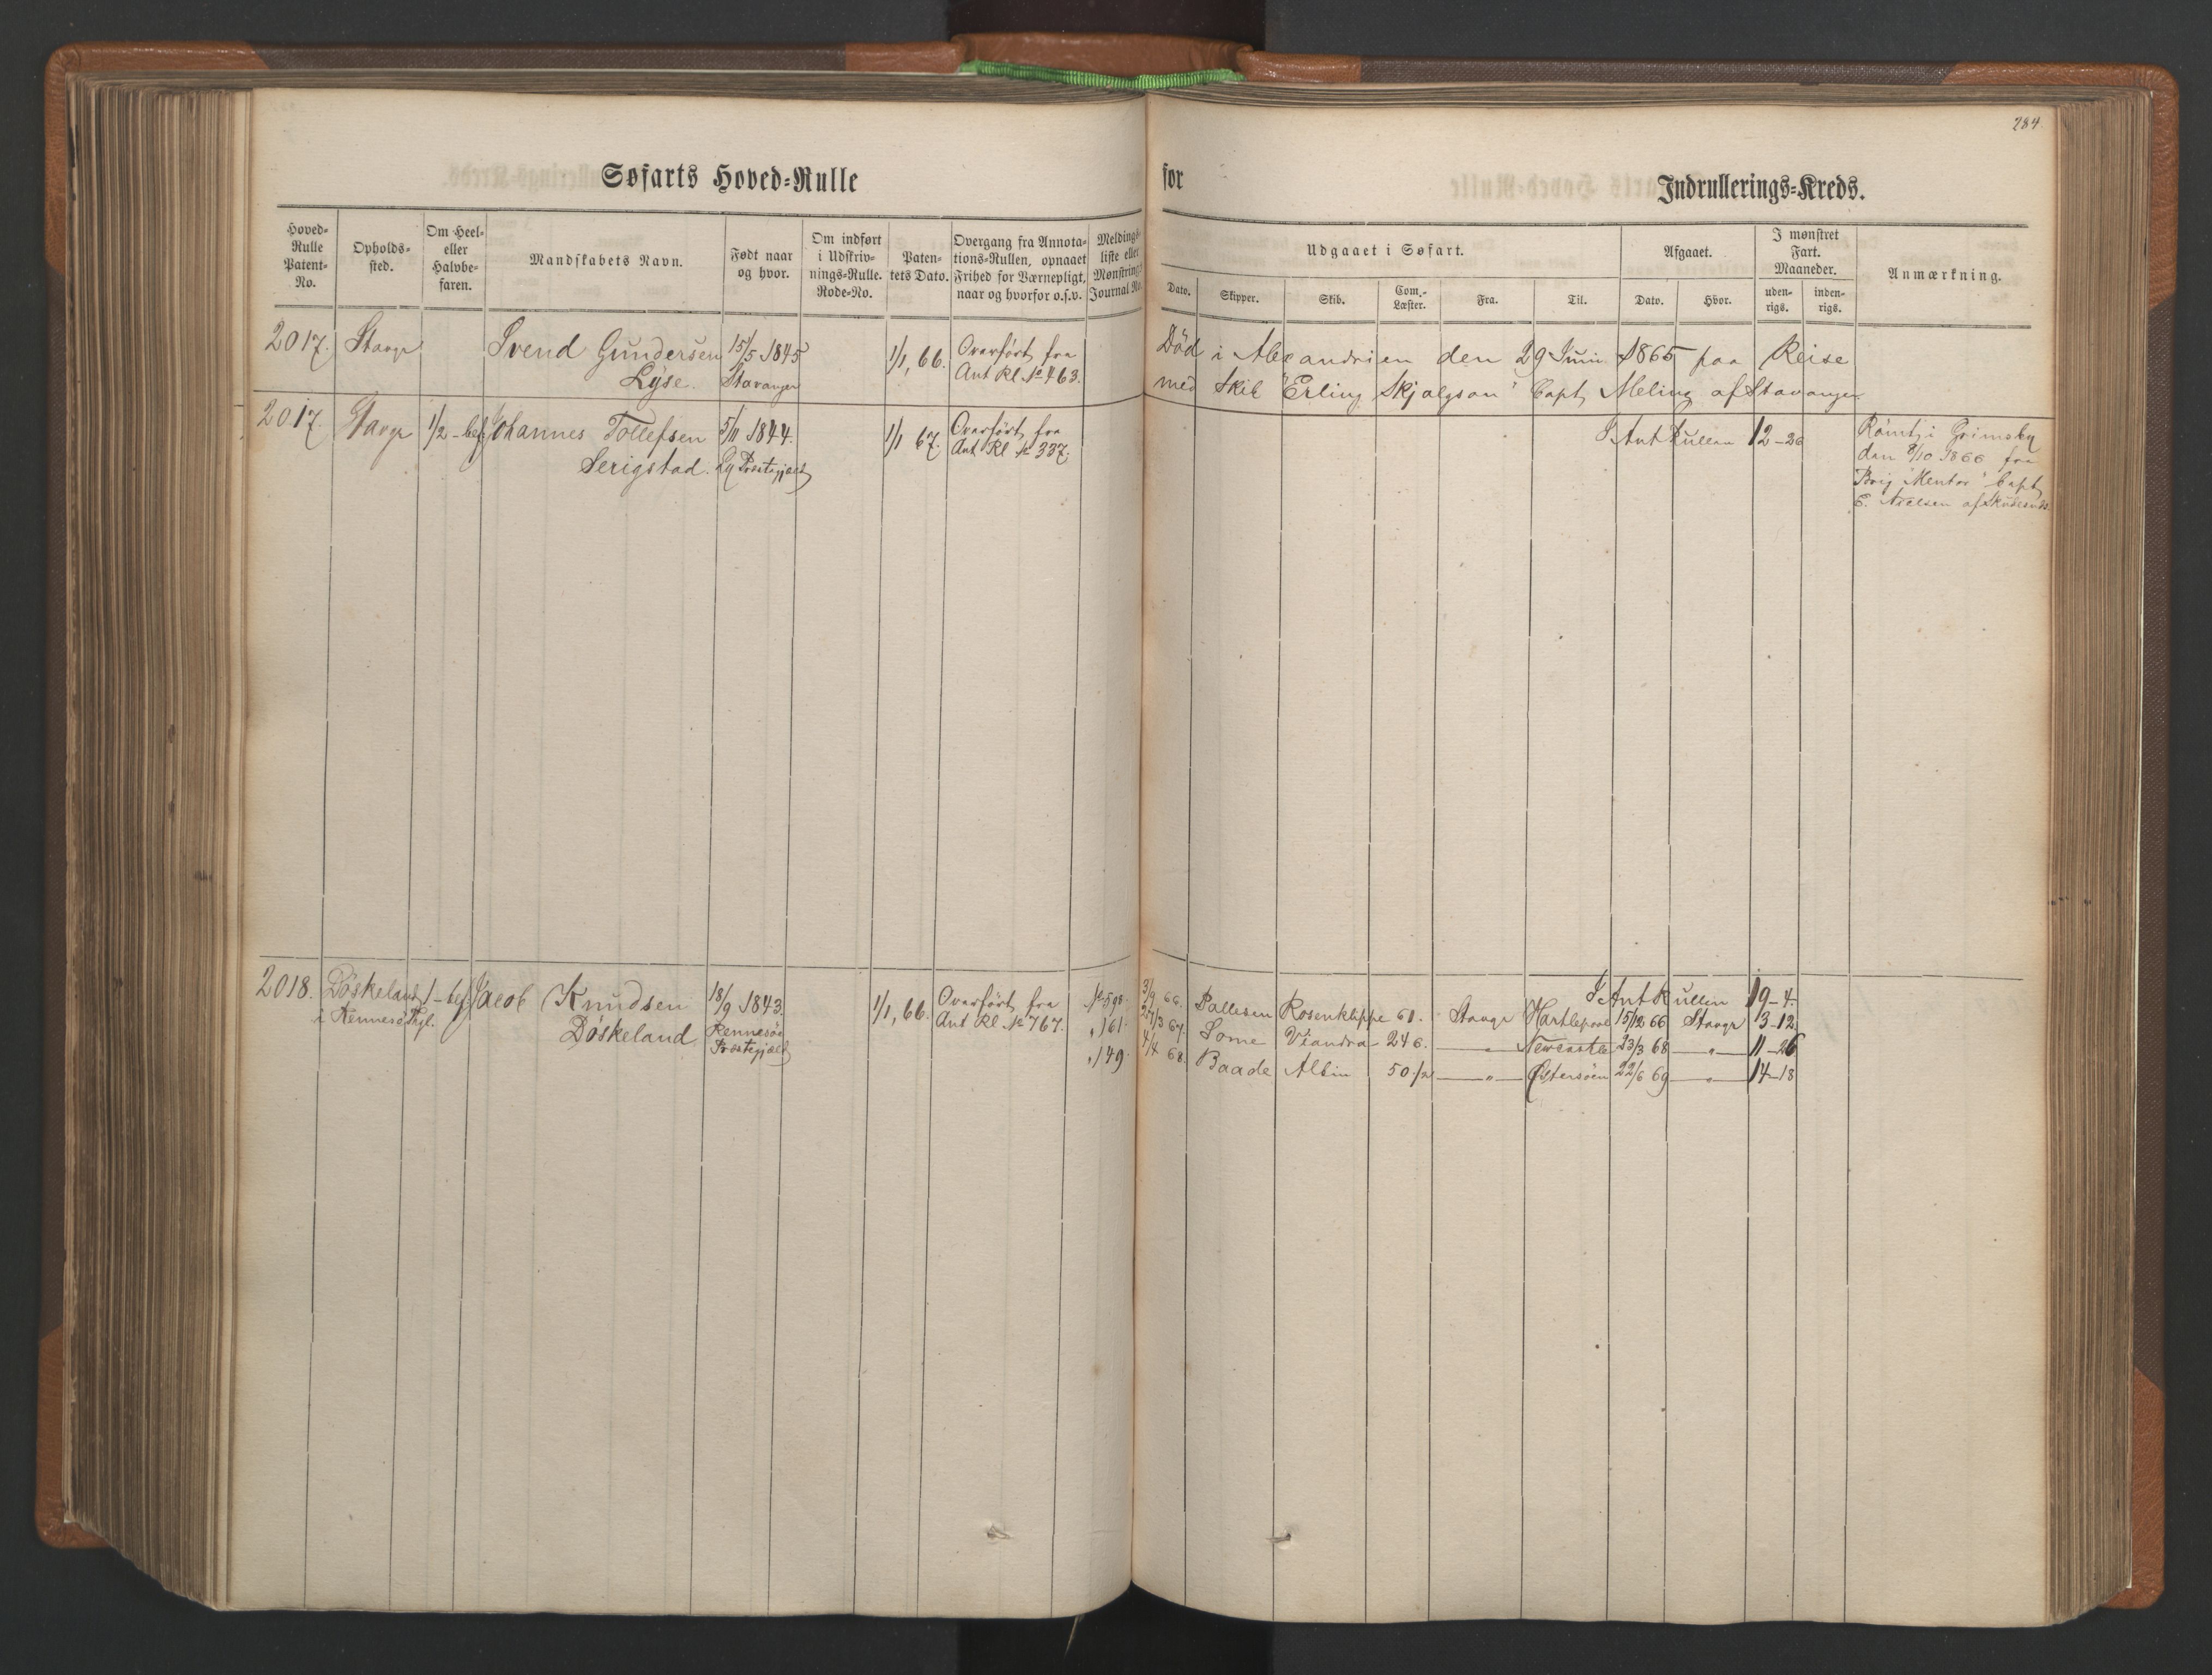 284
Søfarts Hoved=Rulle
for
Indrullerings=Kreds.
Hoved=
Rulle
Patent=
No.
Opholds=
sted.
Om Heel=
eller
Halvbe=
faren.
Mandskabets Navn.
Født naar
og hvor.
Om indført
i Udskriv=
nings=Rulle.
Rode=No.
Paten=
tets Dato.
Overgang fra Annota=
tions=Rullen, opnaaet
Frihed for Værnepligt,
naar og hvorfor o.s.v.
Meldings=
liste eller
Mønstrings
Journal No.
Udgaaet i Søfart.
Dato.
Skipper.
Skib.
Com.=
Læster.
Fra.
Til.
Afgaaet.
Dato.
Hvor.
I mønstret
Fart.
Maaneder.
uden=
rigs.
inden=
rigs.
Anmærkning.
2017. Stavgr Svend Gundersen 15/5 1845 1/1, 66. Overført fra
Lyse. Stavanger Ant Rl. No 463.
Död i Alexandrien den 29 Juni 1865 paa Reise
med Skib "Erling Skjalgson" Capt, Meling af Stavanger
2017. Stavgr 1/2-bef. Johannes Tollefsen 5/11 1844. 1/1 67. Overført fra
Serigstad. Ly Præstegjæld Ant Rl No 337.
I Ant Rullen 12-26
Römt i Grimsby
den 8/10 1866 fra
Brig "Mentor" Capt,
E. Nielsen af Skudesnds
2018. Döskeland 1-bef. Jacob Knudsen 18/9 1843. 1/1, 66. Overført fra No 598.
i Rennesø Pgl. Döskeland Rennesøe Ant Rl No 767. " 161.
Præstegjæld " 149.
I Ant Rullen 19-4.
3/9 66. Pallesen Rosenklippe 61. Stavgr Hartlepool 15/12 66 Stavgr 3-12.
27/3 67. Some Viandra 246. — " — Newcastle 23/3 68 — " — 11-26
4/4 68. Baade Albin 50 1/2 — " — Østersöen 22/6 69 — " — 14-18